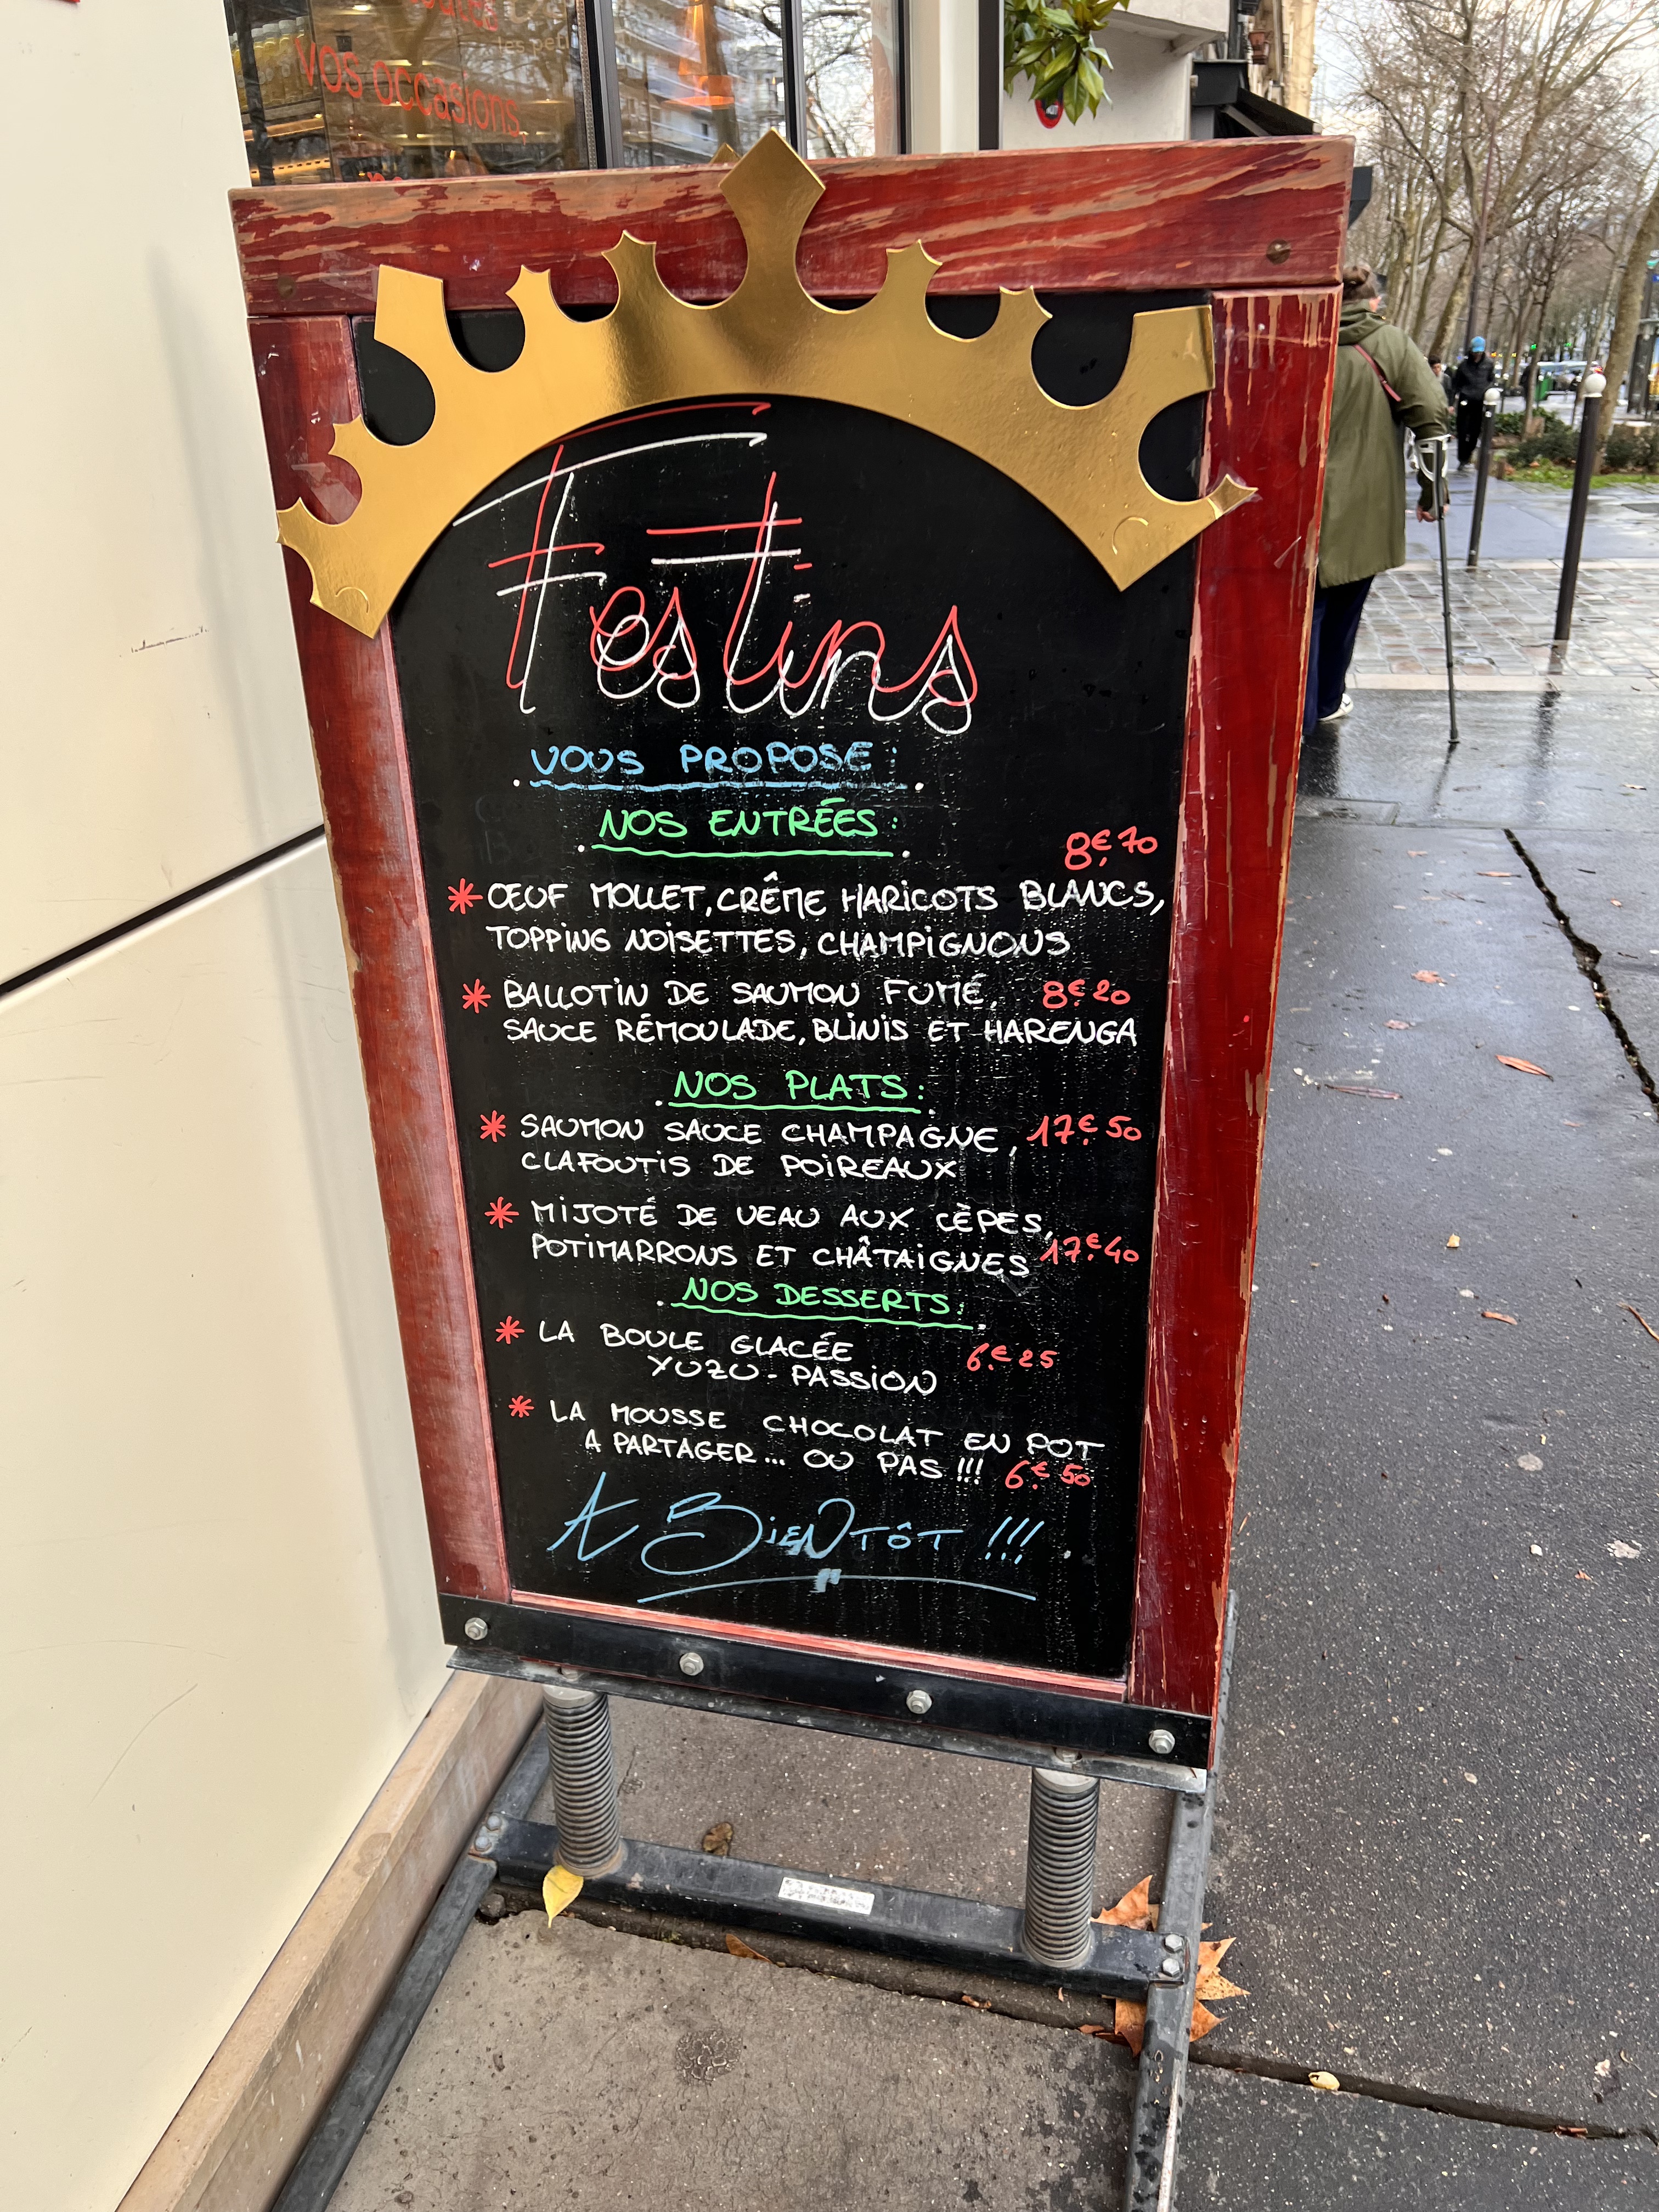 vos occasions
Festins
VOUS PROPOSE :
NOS ENTRÉES :
8€,70
* ŒUF MOLLET, CRÊME HARICOTS BLANCS,
TOPPING NOISETTES, CHAMPIGNONS
* BALLOTIN DE SAUMON FUMÉ, 8€,20
SAUCE RÉMOULADE, BLINIS ET HARENGA
NOS PLATS :
* SAUMON SAUCE CHAMPAGNE, 17€,50
CLAFOUTIS DE POIREAUX
* MIJOTÉ DE VEAU AUX CÈPES,
POTIMARRONS ET CHÂTAIGNES 17€,40
NOS DESSERTS :
* LA BOULE GLACÉE 6€,25
YUZU - PASSION
* LA MOUSSE CHOCOLAT EN POT
A PARTAGER... OU PAS !!! 6€,50
A BIENTÔT !!!